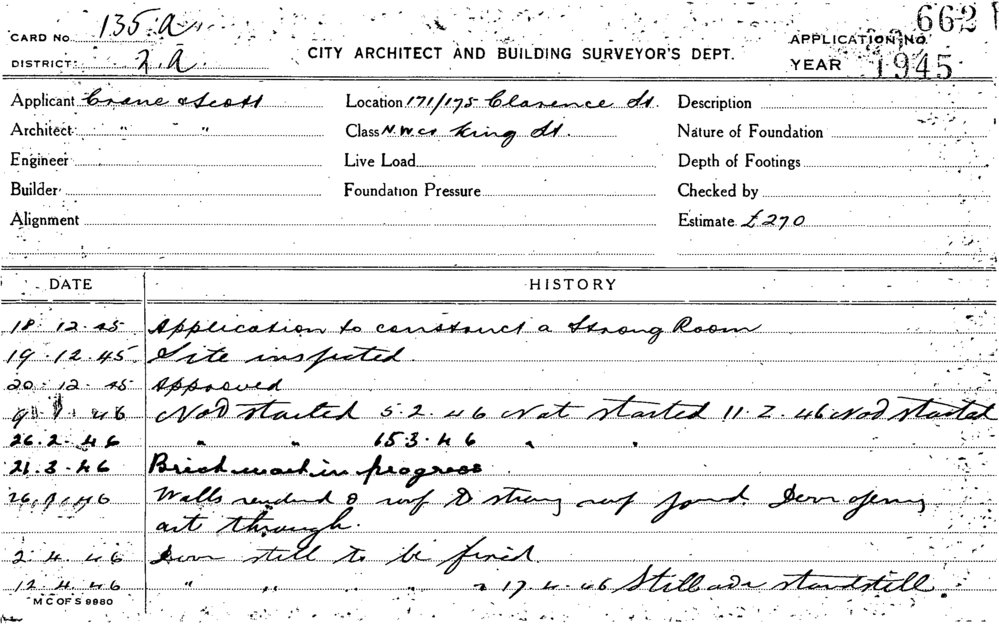 CARD No. 135 A
662
DISTRICT 2 A.
CITY ARCHITECT AND BUILDING SURVEYOR'S DEPT.
APPLICATION No.
YEAR 1945
Applicant Crane & Scott Location 171/175 Clarence St. Description
Architect " " Class N.W.Cr King St. Nature of Foundation
Engineer Live Load Depth of Footings
Builder Foundation Pressure Checked by
Alignment Estimate £270
DATE HISTORY
18.12.45 Application to construct a Strong Room
19.12.45 Site inspected.
20.12.45 Approved
46 Not started 5.2.46 Not started 11.2.46 Not started
26.2.46 " " 15.3.46 " "
21.3.46 Brickwork in progress
Walls rendered & roof to strong Door opening
through.
2.4.46 Door still to be fixed
12.4.46 " " " " " 17.4.46 Still at a standstill.
M C OF S 9980